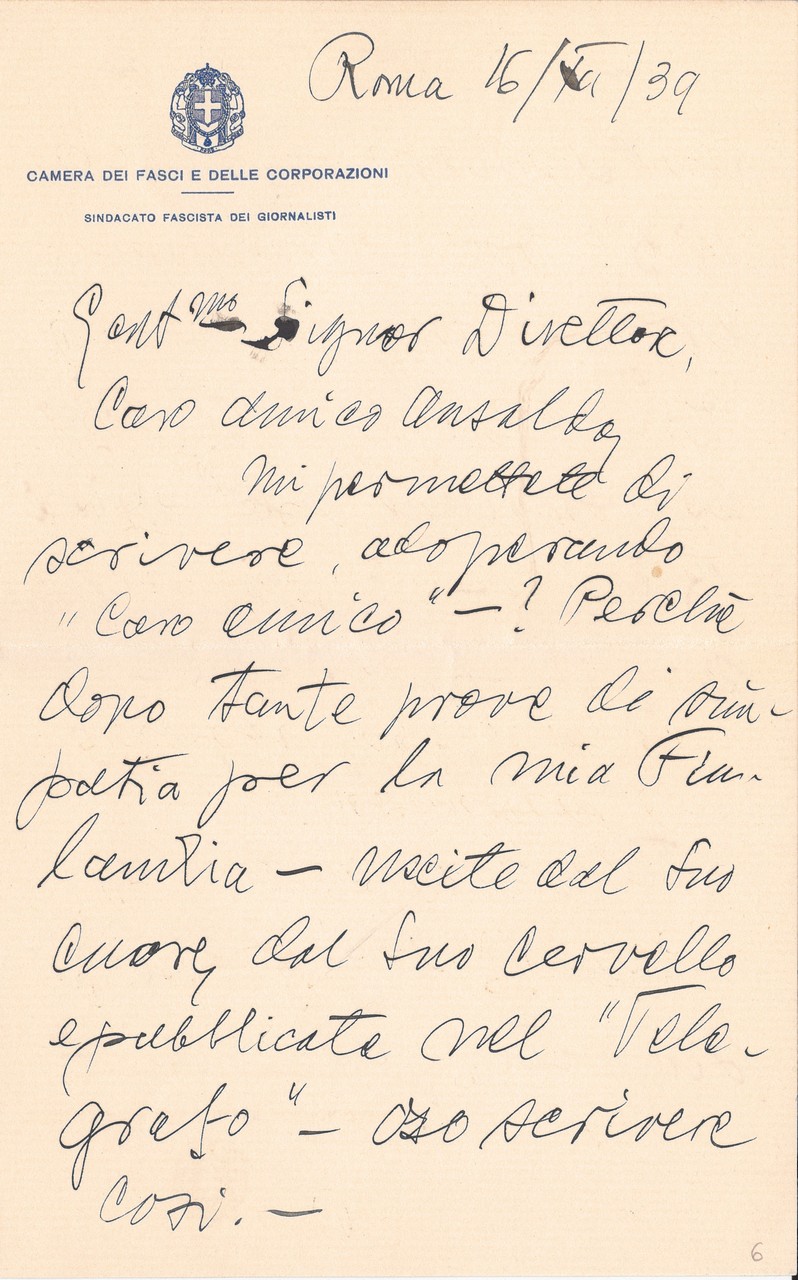 Roma 16/XII/39
CAMERA DEI FASCI E DELLE CORPORAZIONI
SINDACATO FASCISTA DEI GIORNALISTI
Gent.mo Signor Direttore,
Caro amico Ansaldo,
Mi permettete di
scrivere, adoperando
"Caro amico" — ? Perchè
dopo tante prove di sim-
patia per la mia Fin-
landia — uscite dal Suo
cuore, dal Suo cervello
e pubblicate nel "Tele-
grafo" — oso scrivere
così. —
6